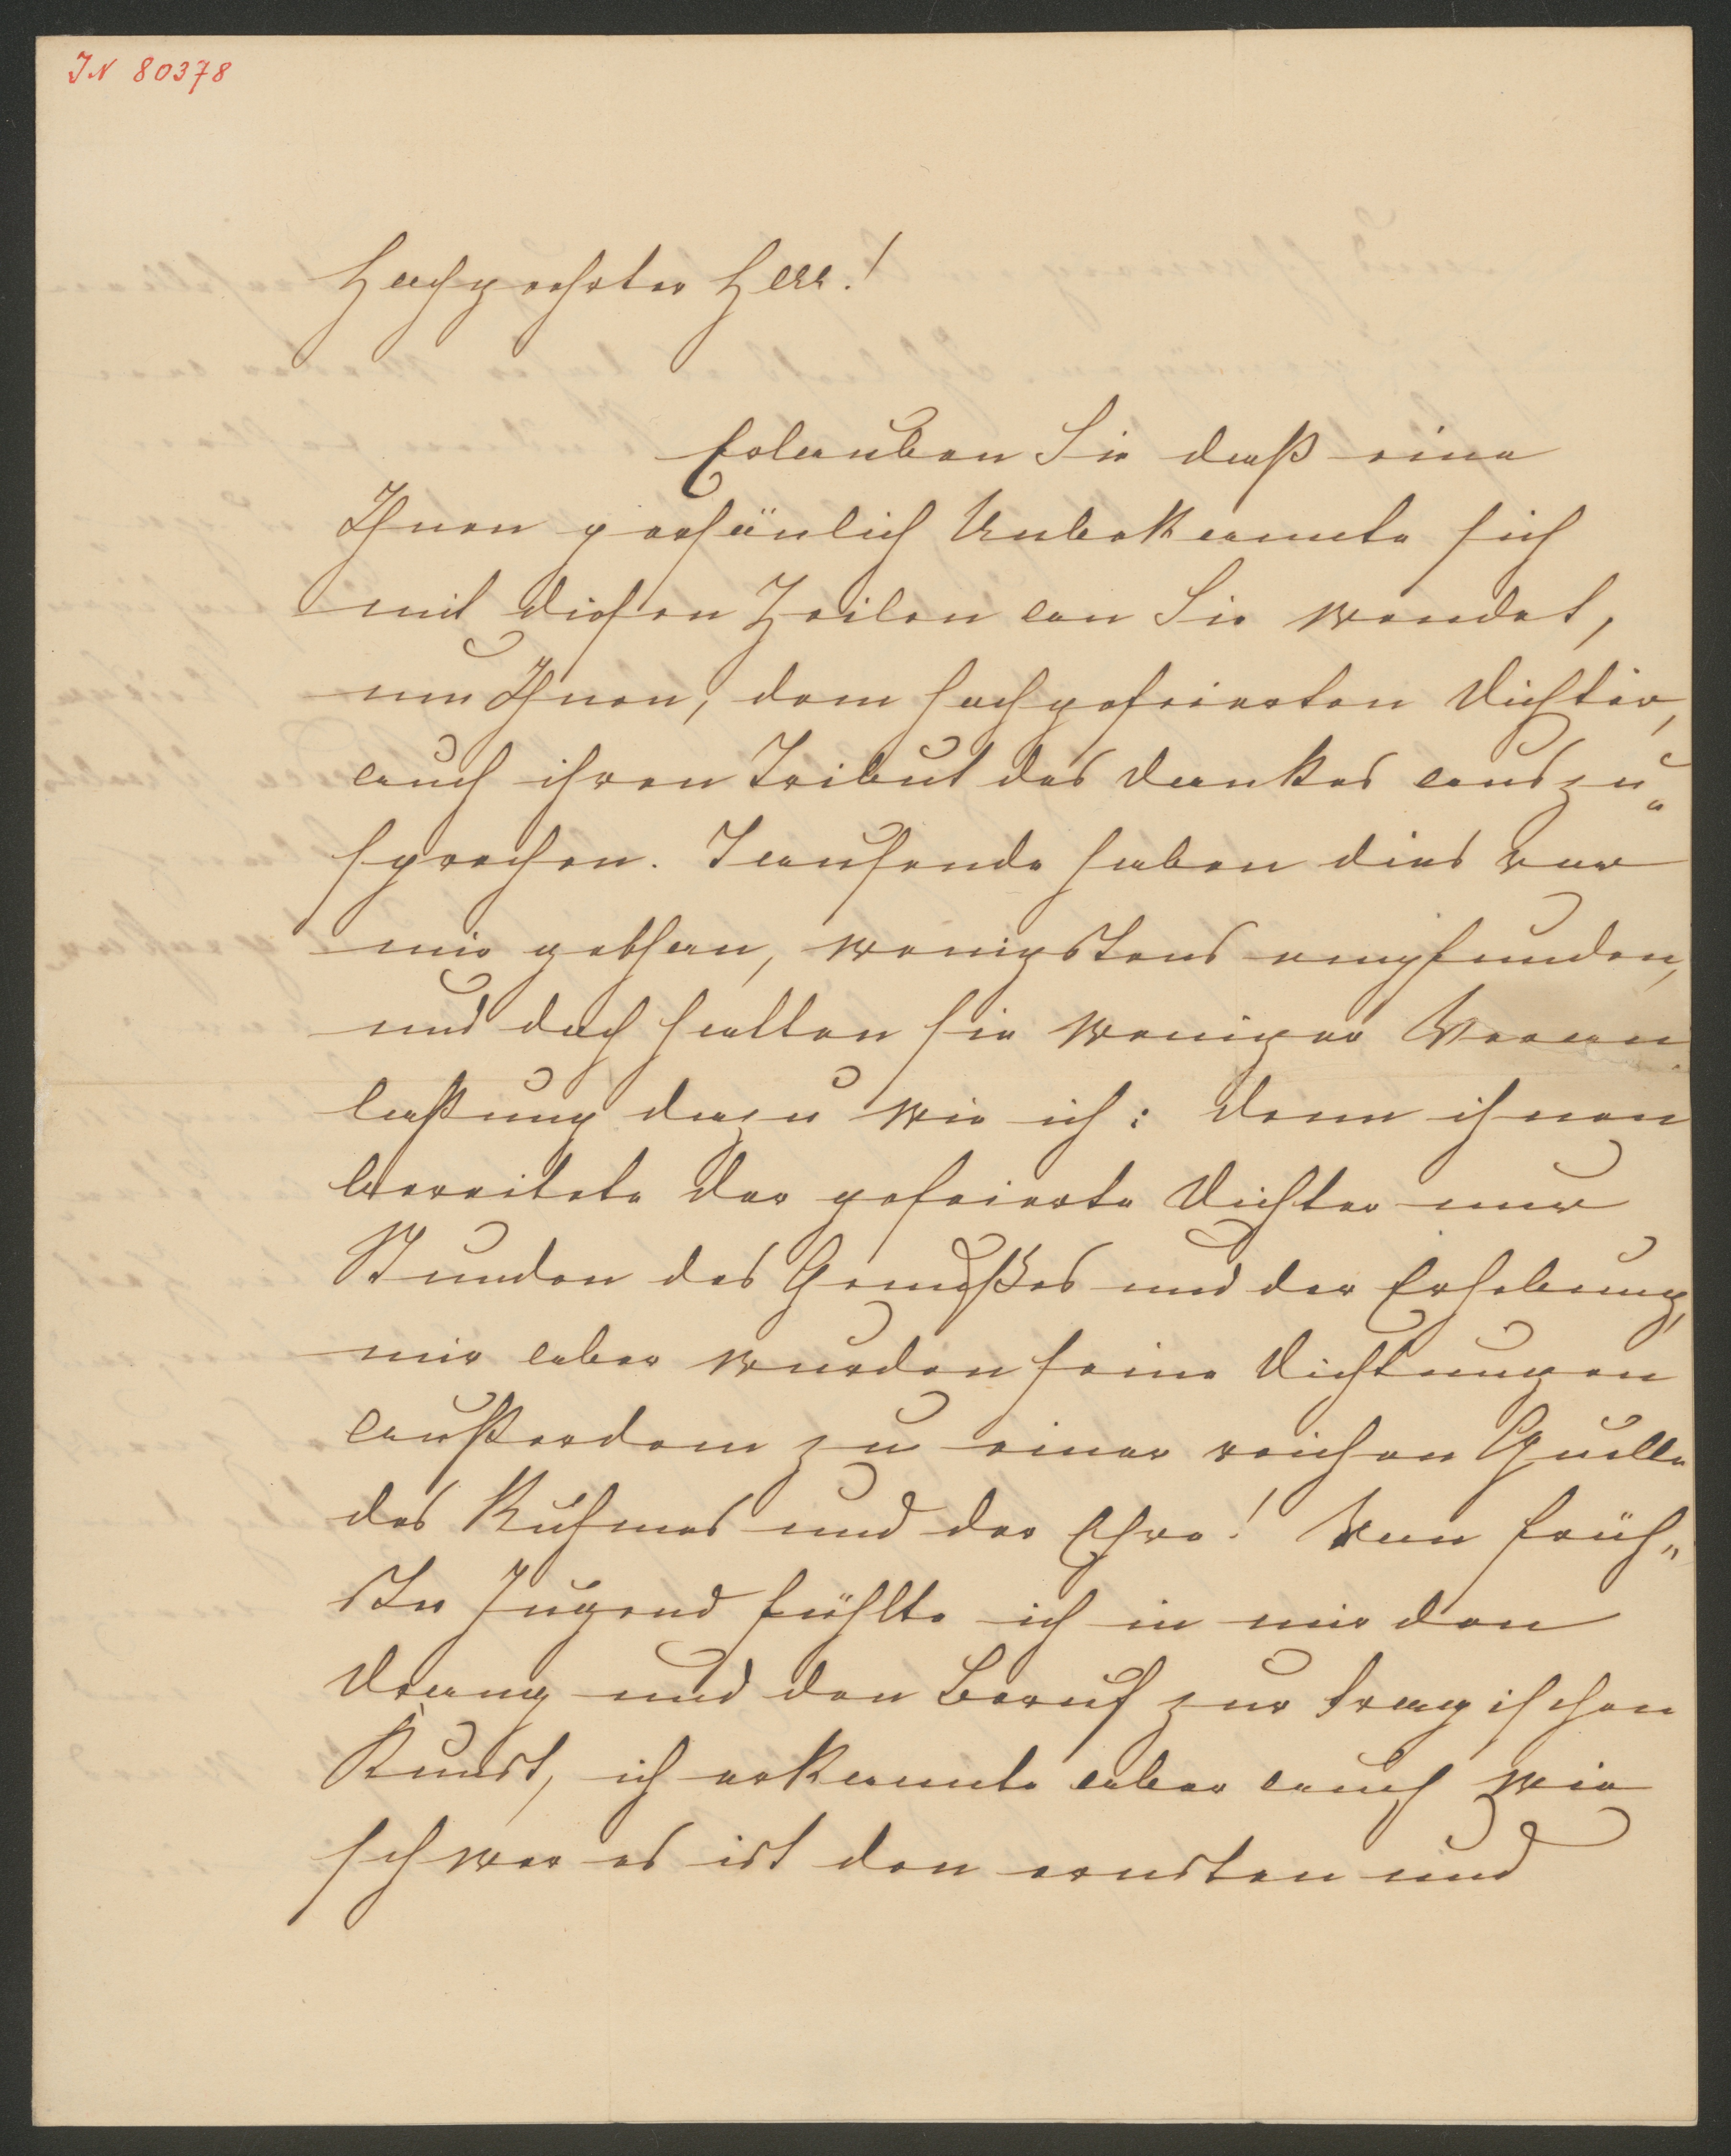 IN 80378
Hochgeehrter Herr!
Erlauben Sie daß eine
Ihnen persönlich Unbekannte sich
mit diesen Zeilen an Sie wendet,
um Ihnen, dem hochgefeierten Dichter,
auch ihren Tribut des Dankes auszu„
sprechen. Tausende haben dies vor
mir gethan, wenigstens empfunden,
und doch hatten sie weniger Veran
laßung dazu wie ich: denn ihnen
bereitete der gefeierte Dichter nur
Stunden des Genußes und der Erhebung,
mir aber wurden seine Dichtungen
außerdem zu einer reichen Quelle
des Ruhmes und der Ehre! Von früh„
ster Jugend fühlte ich in mir den
Drang und den Beruf zur tragischen
Kunst, ich erkannte aber auch wie
schwer es ist den ernsten und